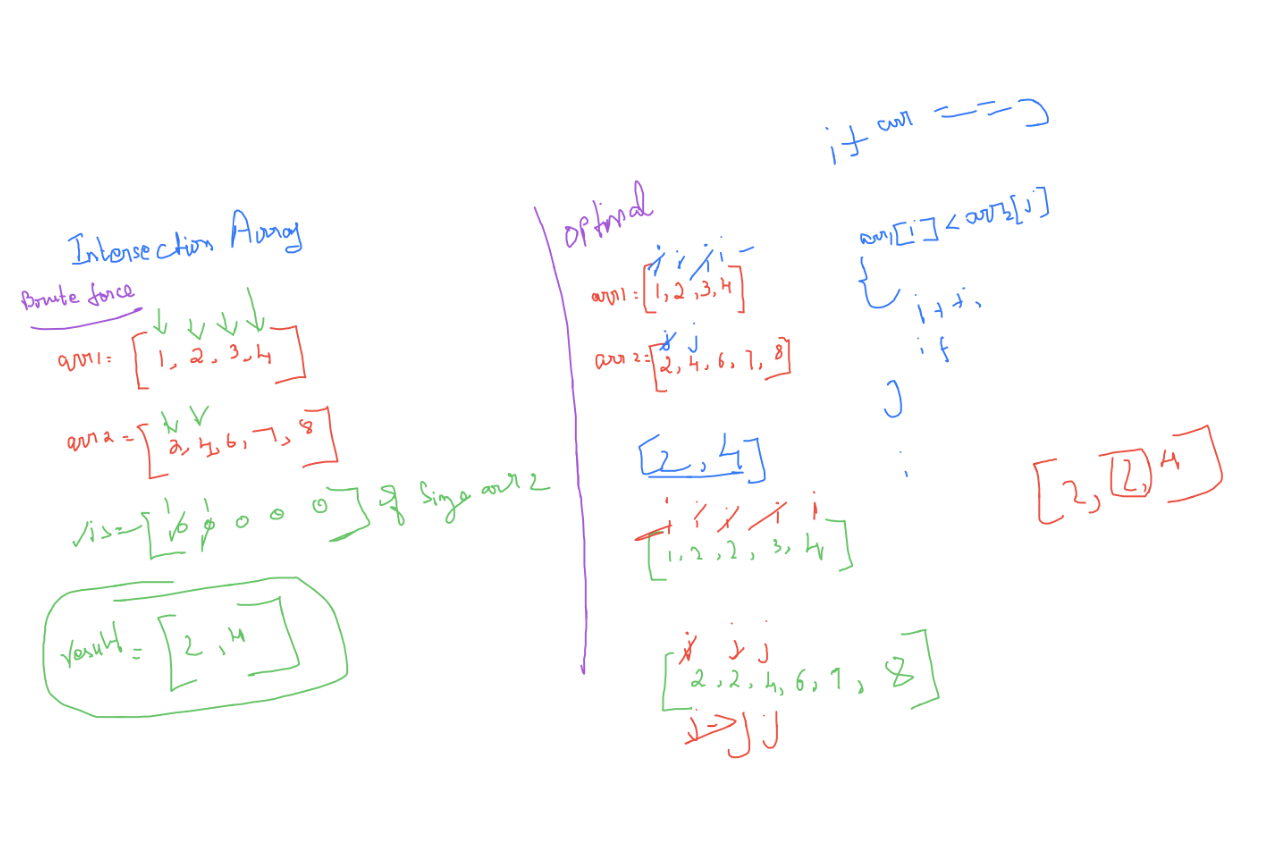 Intersection Array
Brute force
arr1 = [1, 2, 3, 4]
arr2 = [2, 4, 6, 7, 8]
vis = [0 0 0 0 0] of size arr2
1 1
result = [2, 4]
optimal
i i i i
arr1 = [1, 2, 3, 4]
j j
arr2 = [2, 4, 6, 7, 8]
[2, 4]
i i i i i
[1, 2, 2, 3, 4]
j j j
[2, 2, 4, 6, 7, 8]
j j j
if arr
arr1[i] < arr2[j]
{
i++;
if
}
[2, 2, 4]